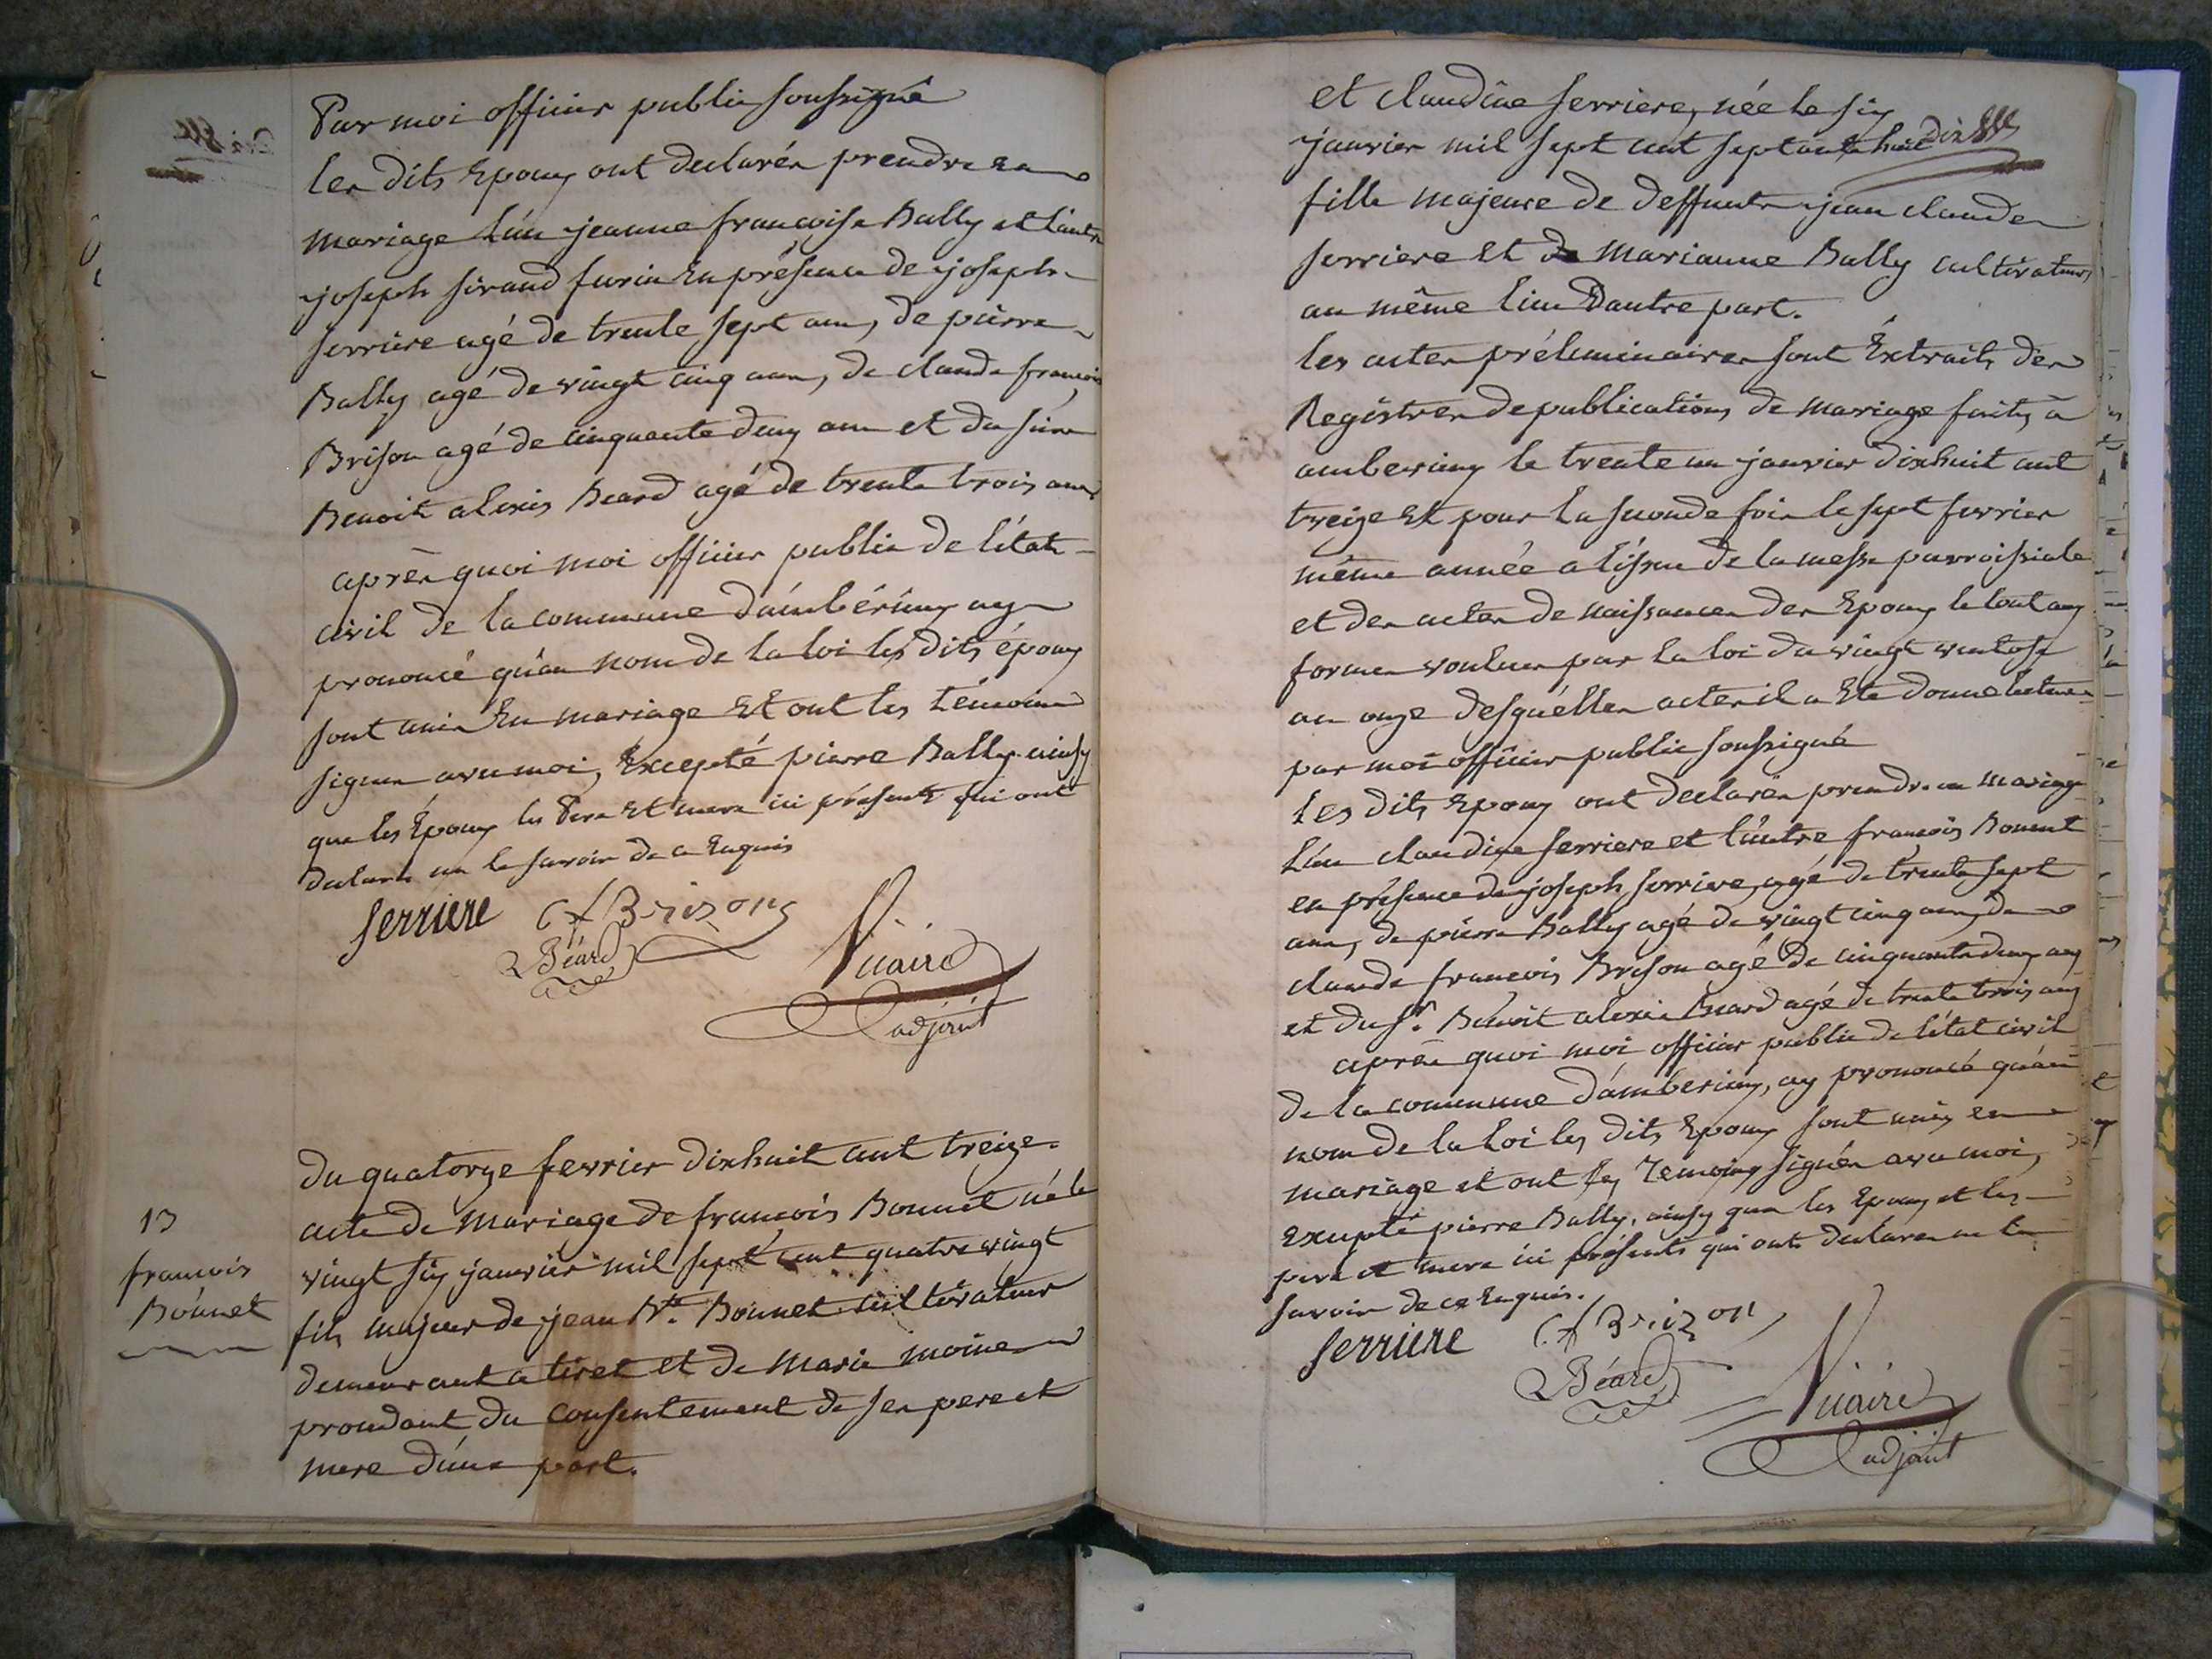 Par moi officier public soussigné
les dits Epoux ont declarés prendre en
mariage L'un jeanne francoise Bally et l'autre
joseph sirand furin En présence de joseph
serriere agé de trente sept ans, de pierre
Bally agé de vingt cinq ans, de claude françois
Brison agé de cinquante deux ans et du sieur
Benoit alexis Beard agé de trente trois ans
après quoi moi officier public de l'état
civil de la commune d'ambérieux ay
prononcé qu'au nom de la loi les dits époux
sont unis En mariage Et ont les témoins
signés avec moi, Excepté pierre Bally ainsy
que les Epoux les Pere Et mere ici présents qui ont
declaré ne le savoir de ce Enquis
serriere CfBrizon
Béard
Vicaire
adjoint
du quatorze fevrier dixhuit cent treize
acte de mariage de francois Bonnet né le
13
francois
Bonnet
vingt six janvier mil sept cent quatre vingt
fils majeur de jean Bte. Bonnet cultivateur
demeurant a tiret et de marie moine
procedant du consentement de ses pere et
mere d'une part.
et claudine serriere, née le six
janvier mil sept cent septante huit dix
fille majeure de deffunt jean claude
serriere et de marianne Bally cultivateurs
au même lieu D'autre part.
les actes préléminaires sont Extraits des
Registres de publications de mariage faits à
amberieux le trente un janvier dixhuit cent
treize Et pour la seconde fois le sept fevrier
même année a l'issue de la messe parroissiale
et des actes de naissances des Epoux le tout aux
formes voulues par la loi du vingt ventose
an onze desquelles actes il a Ete donné lecture
par moi officier public soussigné
les dits Epoux ont declarés prendre en mariage
L'un claudine serriere et l'autre francois Bonnet
en présence de joseph serriere, agé de trente sept
ans, de pierre Bally agé de vingt cinq ans, de
claude francois Brison agé de cinquante deux ans
et du Sr. Benoit alexis Beard agé de trente trois ans
après quoi moi officier public de l'état civil
de la commune d'amberieux, ay prononcé qu'au
nom de la loi les dits Epoux sont unis en
mariage et ont les Temoins signés avec moi,
Excepté pierre Bally, ainsy que les Epoux et les
pere et mere ici présents qui ont declarés ne le
savoir de ce Enquis.
serriere CfBrizon
Béard
Vicaire
adjoint